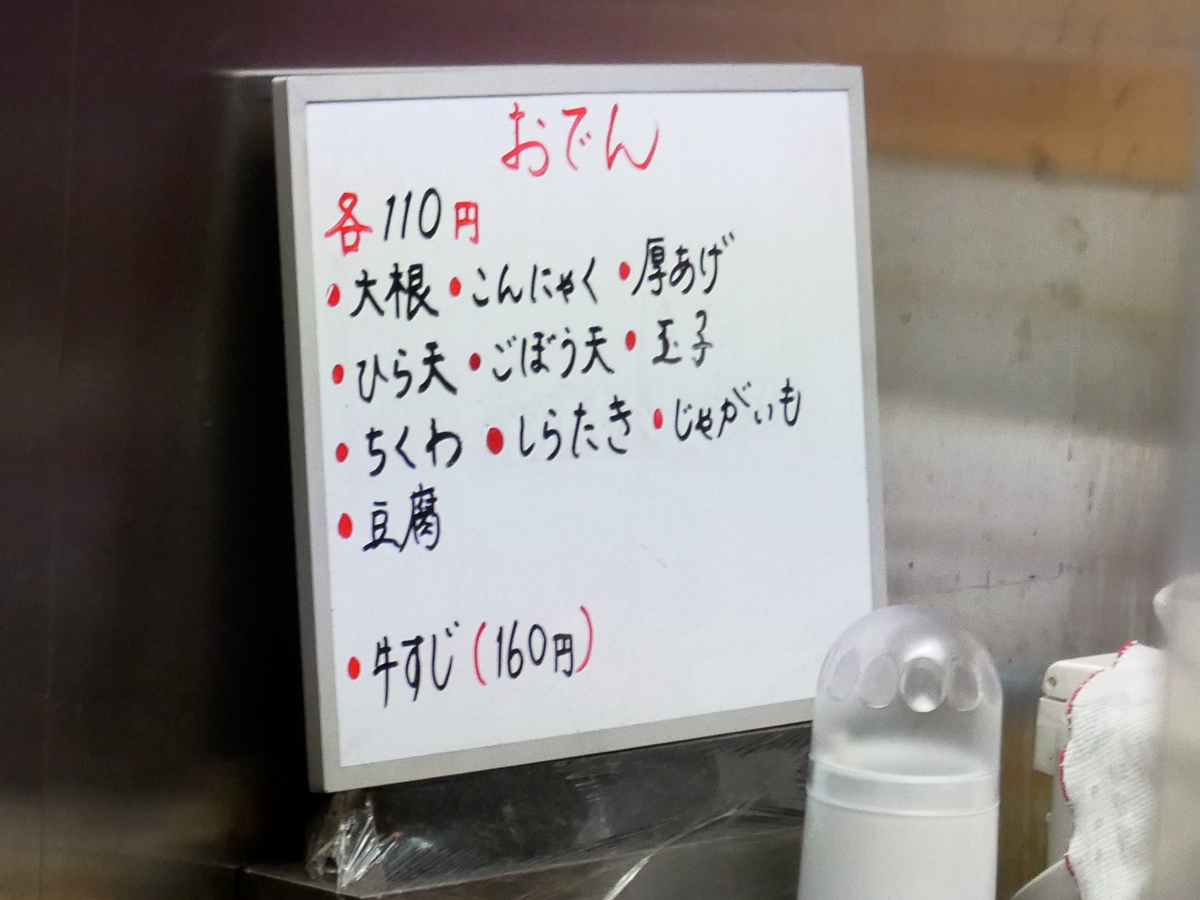 おでん
各110円
•大根•こんにゃく•厚あげ
•ひら天•ごぼう天•玉子
•ちくわ•しらたき•じゃがいも
•豆腐
•牛すじ(160円)